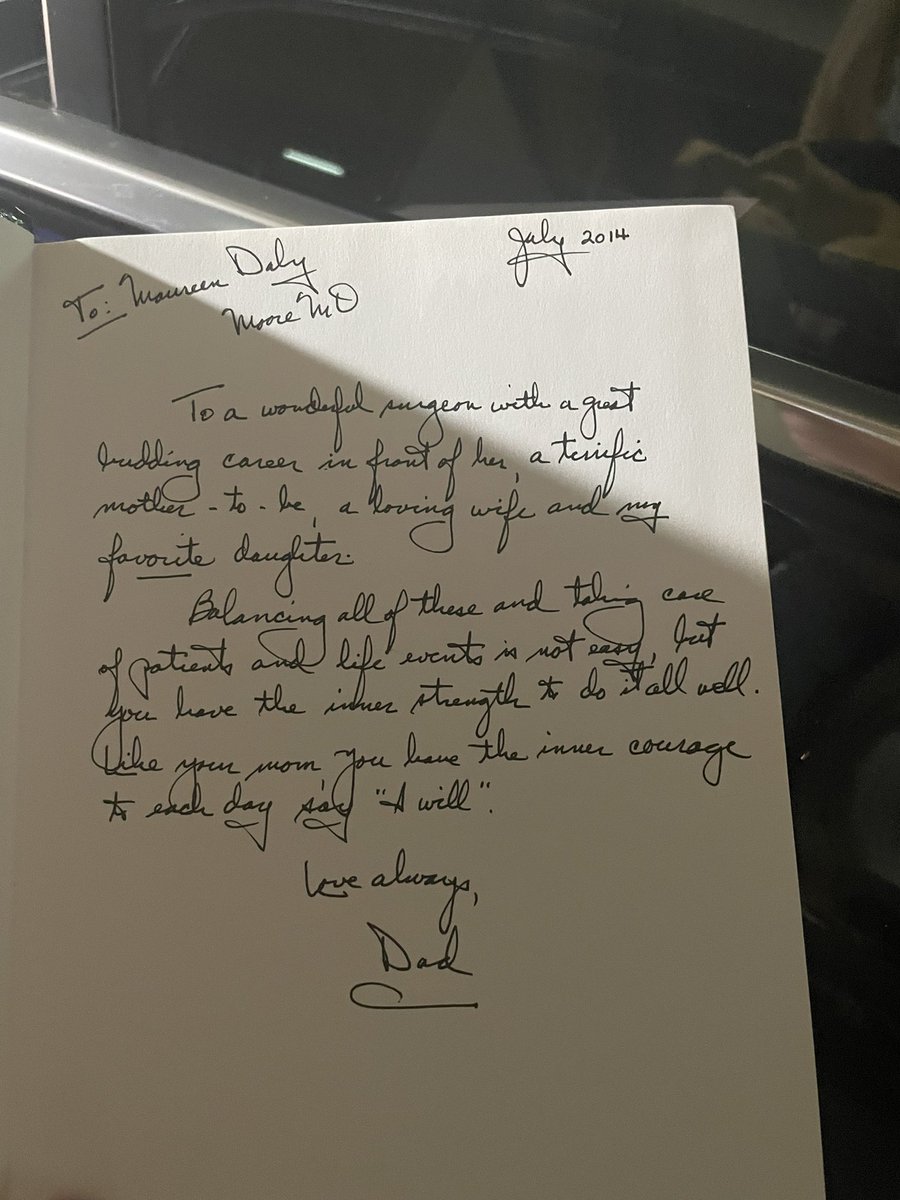 July 2014
To: Maureen Daly
Moore MD
To a wonderful surgeon with a great
budding career in front of her, a terrific
mother-to-be, a loving wife and my
favorite daughter.
Balancing all of these and taking care
of patients and life events is not easy, but
you have the inner strength to do it all well.
Like your mom, you have the inner courage
to each day say "I will".
Love always,
Dad